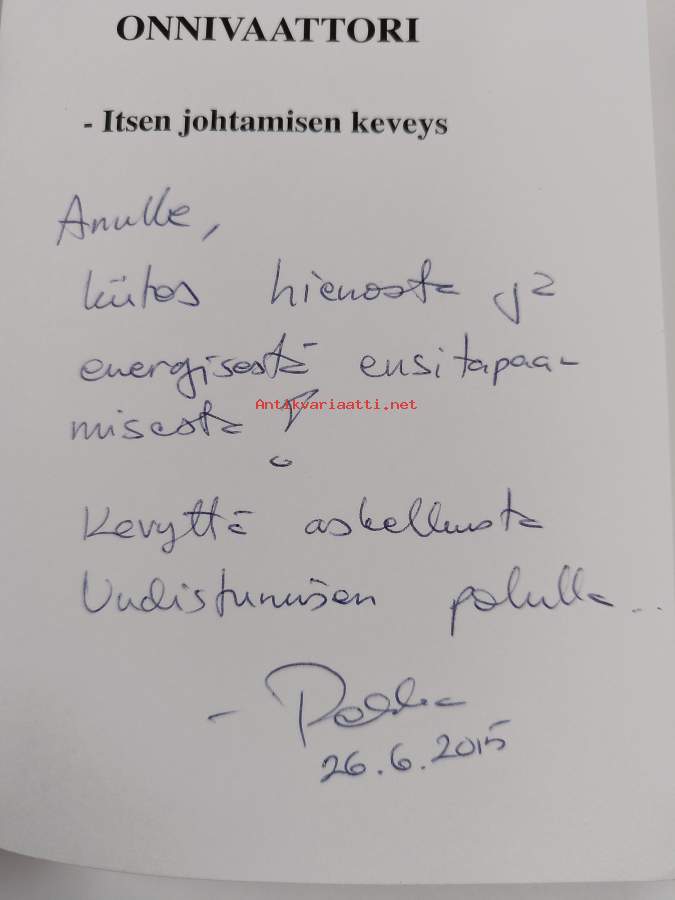 ONNIVAATTORI
- Itsen johtamisen keveys
Anulle,
kiitos hienosta ja
energisestä ensitapaa-
misesta !
Antikvariaatti.net
Kevyttä askellusta
Uudistumisen polulla...
- Pekka
26.6.2015